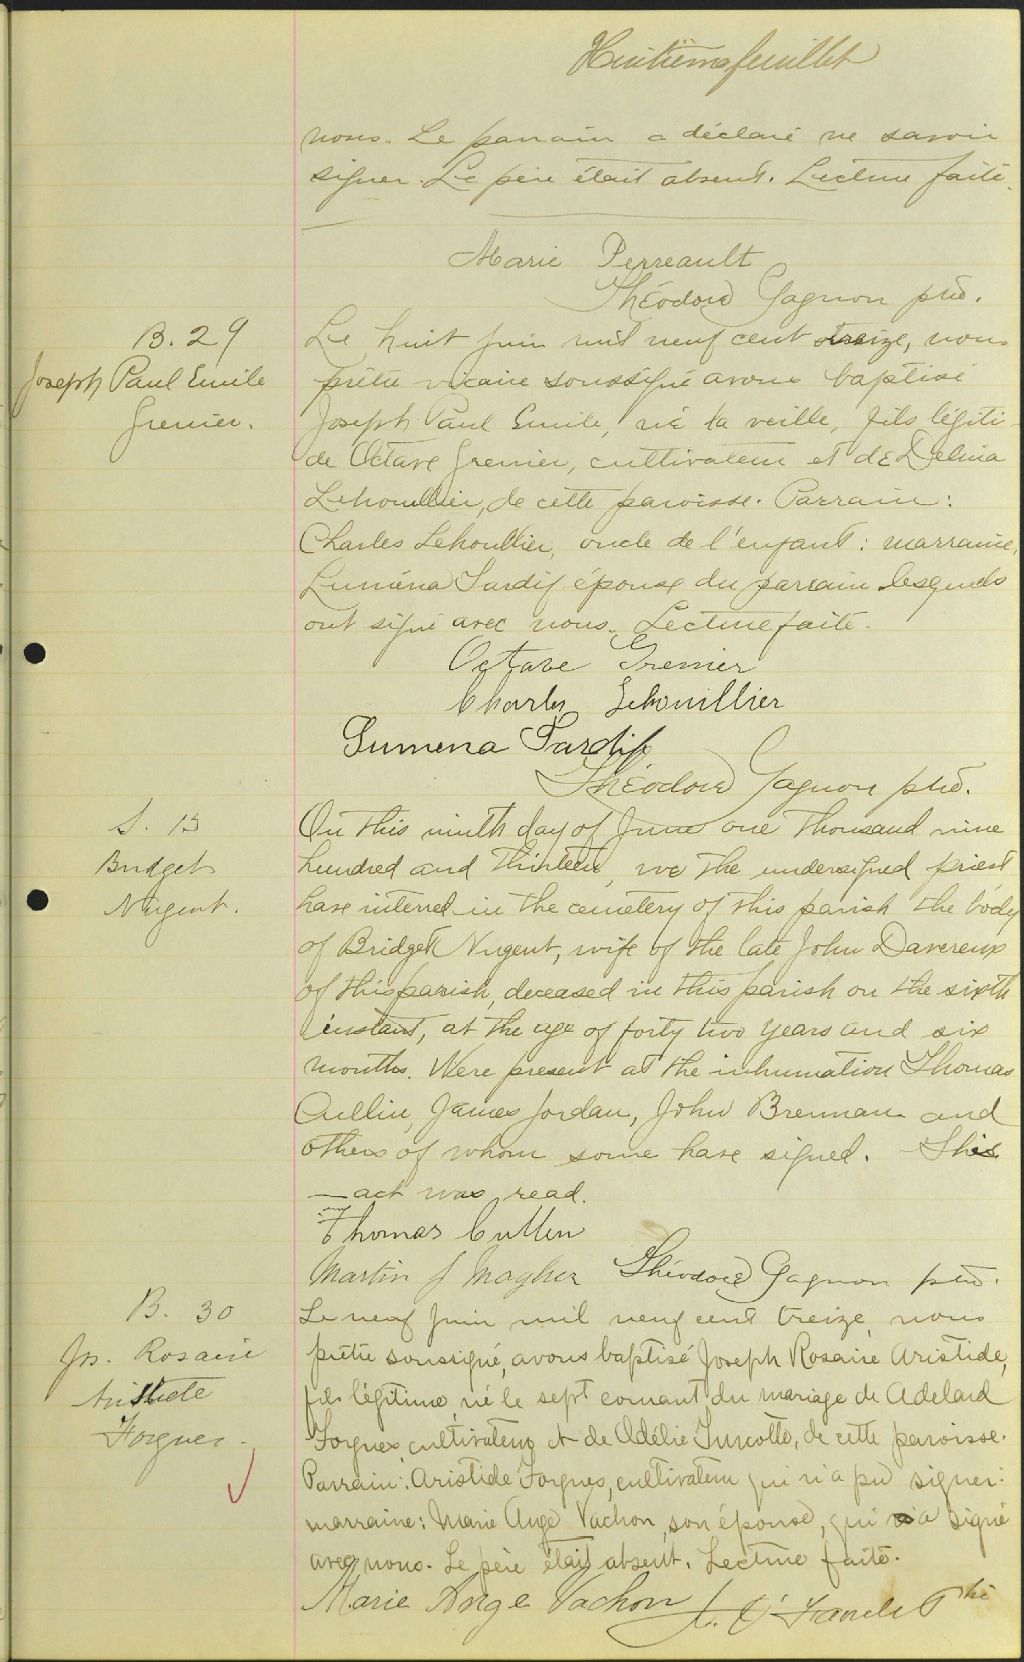 Huitième feuillet
nous. Le parrain a déclaré ne savoir
signer. Le père était absent. Lecture faite.
Marie Perreault
Théodore Gagnon ptre.
B. 29
Joseph Paul Emile
Grenier.
Le huit juin mil neuf cent treize, nous
prêtre vicaire soussigné avons baptisé
Joseph Paul Emile, né la veille, fils légiti-
de Octave Grenier, cultivateur et de Delina
Lehoullier, de cette paroisse. Parrain:
Charles Lehoullier, oncle de l'enfant: marraine,
Luména Tardif épouse du parrain lesquels
ont signé avec nous. Lecture faite.
Octave Grenier
Charles Lehouillier
Lumena Tardif
Théodore Gagnon ptre.
S. 13
Bridget
Nugent.
On this ninth day of June one thousand nine
hundred and thirteen, we the undersigned priest
have interred in the cemetery of this parish the body
of Bridget Nugent, wife of the late John Davereux
of this parish, deceased in this parish on the sixth
instant, at the age of forty two years and six
months. Were present at the inhumation Thomas
Cullin, James Jordan, John Brennan and
others of whom some have signed. This
act was read.
Thomas Cullen
Martin J Magher Théodore Gagnon ptre.
B. 30
Jos. Rosaire
Aristide
Forgues.
Le neuf juin mil neuf cent treize, nous
prêtre soussigné, avons baptisé Joseph Rosaire Aristide,
fils légitime, né le sept courant du mariage de Adelard
Forgues, cultivateur et de Adélie Turcotte, de cette paroisse.
Parrain: Aristide Forgues, cultivateur qui n'a pu signer:
marraine: Marie Ange Vachon, son épouse, qui a signé
avec nous. Le père était absent. Lecture faite.
Marie Ange Vachon